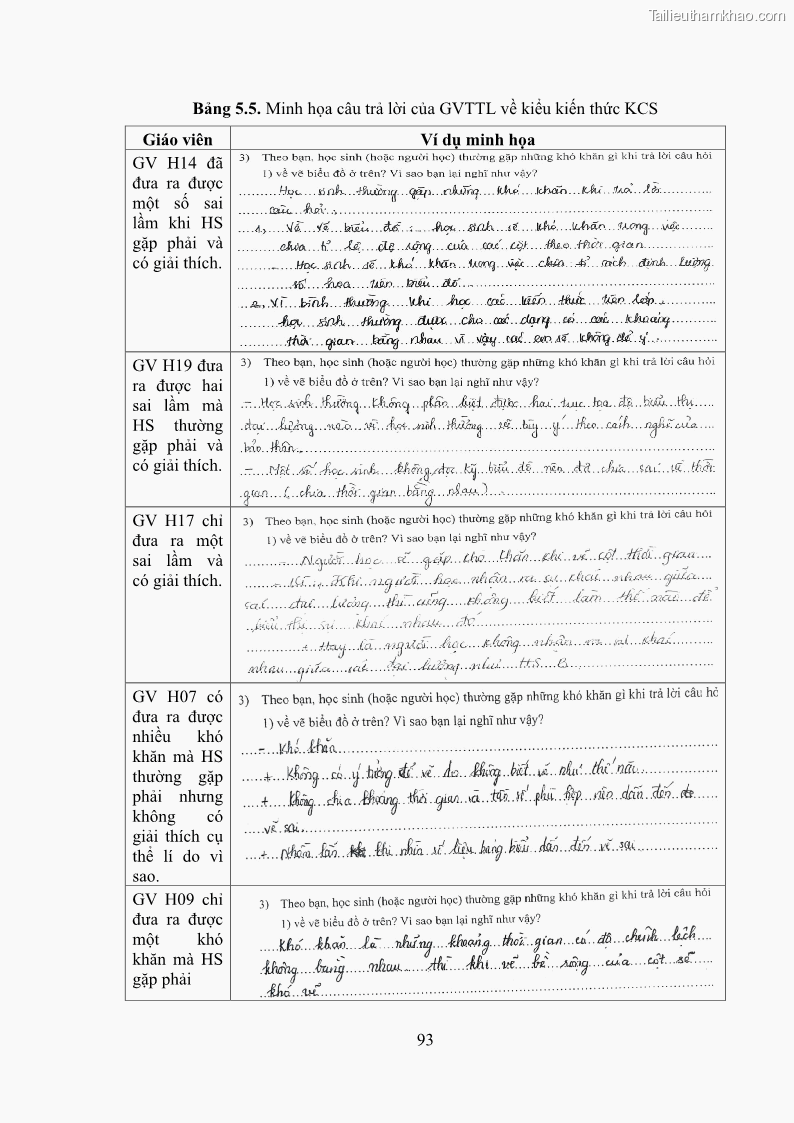 Tailieuthamkhao.com
Bảng 5.5. Minh họa câu trả lời của GVTTL về kiểu kiến thức KCS
Giáo viên
Ví dụ minh họa
GV H14 đã
đưa ra được
một số sai
lầm khi HS
gặp phải và
có giải thích.
3) Theo bạn, học sinh (hoặc người học) thường gặp những khó khăn gì khi trả lời câu hỏi
1) về vẽ biểu đồ ở trên? Vì sao bạn lại nghĩ như vậy?
Học sinh thường gặp những khó khăn khi trả lời
câu hỏi:
1, Về vẽ biểu đồ: học sinh sẽ khó khăn trong việc
chia tỉ lệ độ rộng của các cột theo thời gian
- Học sinh sẽ khó khăn trong việc chia tỉ định lượng
số hóa trên biểu đồ.
2, Vì bình thường khi học các kiến thức trên lớp,
học sinh thường được cho các dạng có các khoảng
thời gian bằng nhau vì vậy các em sẽ không để ý.
GV H19 đưa
ra được hai
sai lầm mà
HS thường
gặp phải và
có giải thích.
3) Theo bạn, học sinh (hoặc người học) thường gặp những khó khăn gì khi trả lời câu hỏi
1) về vẽ biểu đồ ở trên? Vì sao bạn lại nghĩ như vậy?
- Học sinh thường không phân biệt được hai trục tọa độ biểu thị
đại lượng nào vì học sinh thường vẽ tùy ý theo cách nghĩ của
bản thân.
- Một số học sinh không đọc kỹ biểu đồ nên đã chia sai về thời
gian (chia thời gian bằng nhau)
GV H17 chỉ
đưa ra một
sai lầm và
có giải thích.
3) Theo bạn, học sinh (hoặc người học) thường gặp những khó khăn gì khi trả lời câu hỏi
1) về vẽ biểu đồ ở trên? Vì sao bạn lại nghĩ như vậy?
- Người học sẽ gặp khó khăn khi vẽ cột thời gian
- Vì: + Khi người học nhận ra sự khác nhau giữa
các đại lượng thì cũng không biết làm thế nào để
biểu thị sự khác nhau đó
+ Hay là người học không nhận ra sự khác
nhau giữa các đại lượng như HS B
GV H07 có
đưa ra được
nhiều khó
khăn mà HS
thường gặp
phải nhưng
không có
giải thích cụ
thể lí do vì
sao.
3) Theo bạn, học sinh (hoặc người học) thường gặp những khó khăn gì khi trả lời câu hỏ
1) về vẽ biểu đồ ở trên? Vì sao bạn lại nghĩ như vậy?
- Khó khăn
+ Không có ý tưởng để vẽ do không biết vẽ như thế nào.
+ Không chia khoảng thời gian và tần số phù hợp nên dẫn đến
vẽ sai.
+ Nhầm lẫn khi nhìn số liệu bảng biểu dẫn đến vẽ sai
GV H09 chỉ
đưa ra được
một khó
khăn mà HS
gặp phải
3) Theo bạn, học sinh (hoặc người học) thường gặp những khó khăn gì khi trả lời câu hỏi
1) về vẽ biểu đồ ở trên? Vì sao bạn lại nghĩ như vậy?
Khó khăn là những khoảng thời gian có độ chênh lệch
không bằng nhau thì khi vẽ bề rộng của cột sẽ
khó vẽ
93